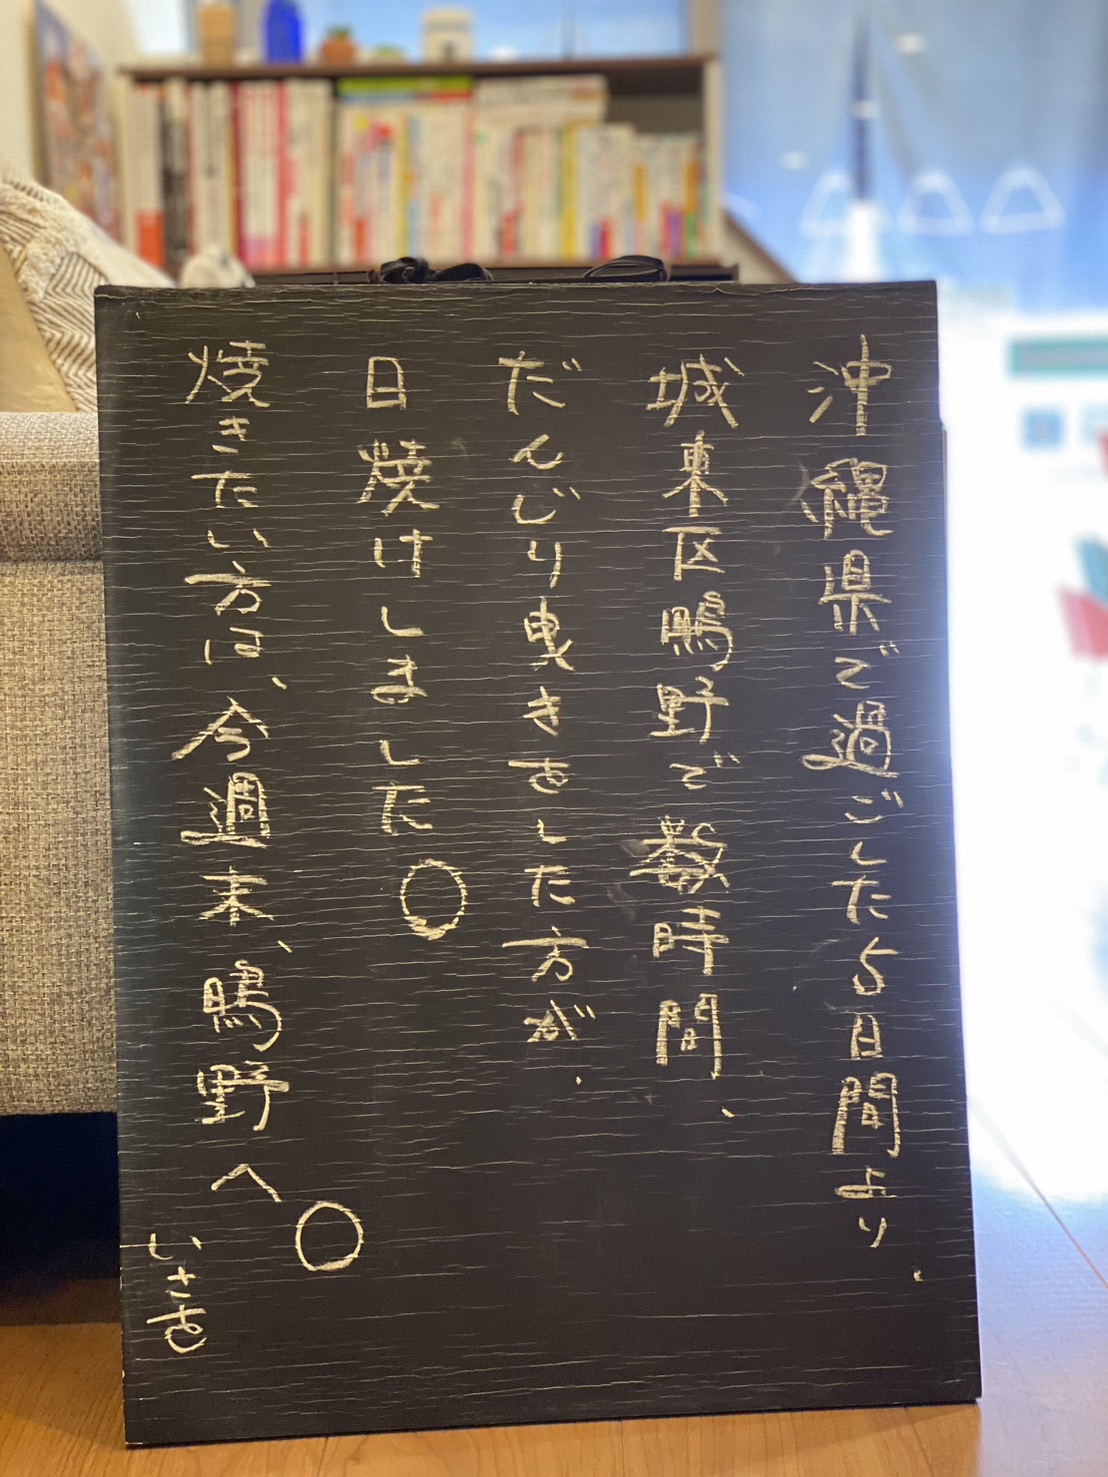 沖縄県で過ごした5日間より、
城東区鴫野で数時間、
だんじり曳きをした方が、
日焼けしました。
焼きたい方は、今週末、鴫野へ。
いさを